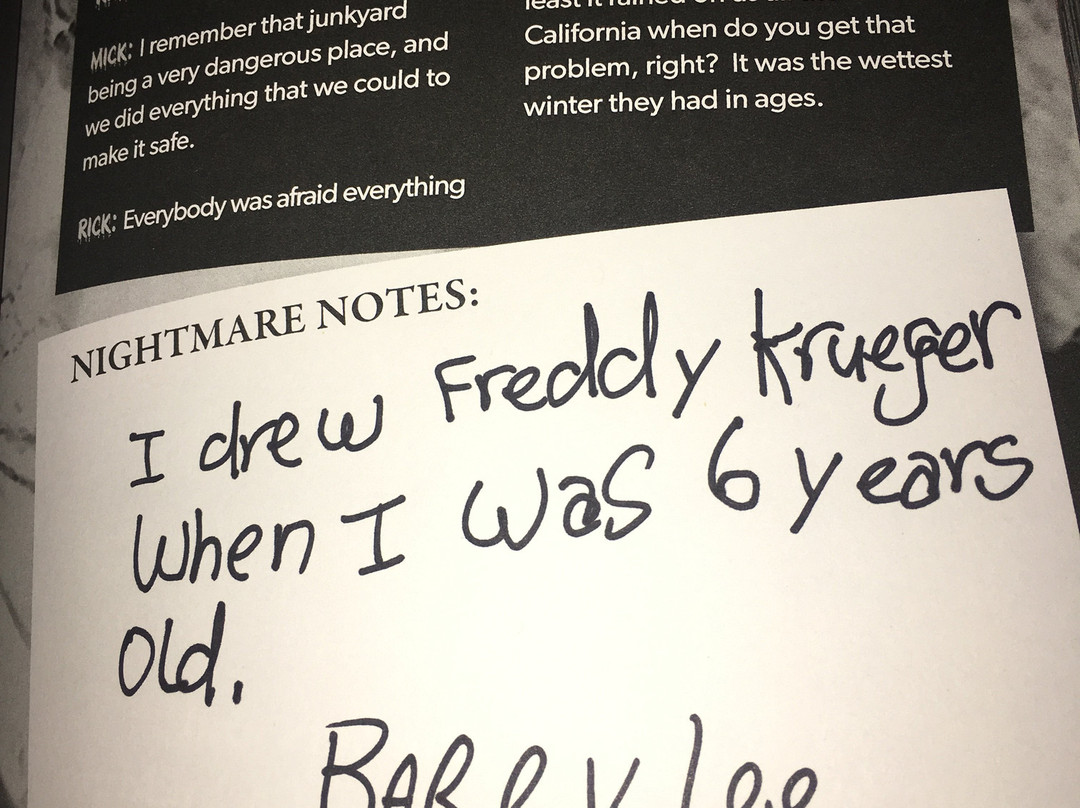 MICK: I remember that junkyard
being a very dangerous place, and
we did everything that we could to
make it safe.
RICK: Everybody was afraid everything
California when do you get that
problem, right? It was the wettest
winter they had in ages.
NIGHTMARE NOTES:
I drew Freddy Krueger
When I was 6 years
old.
BARRy Lee